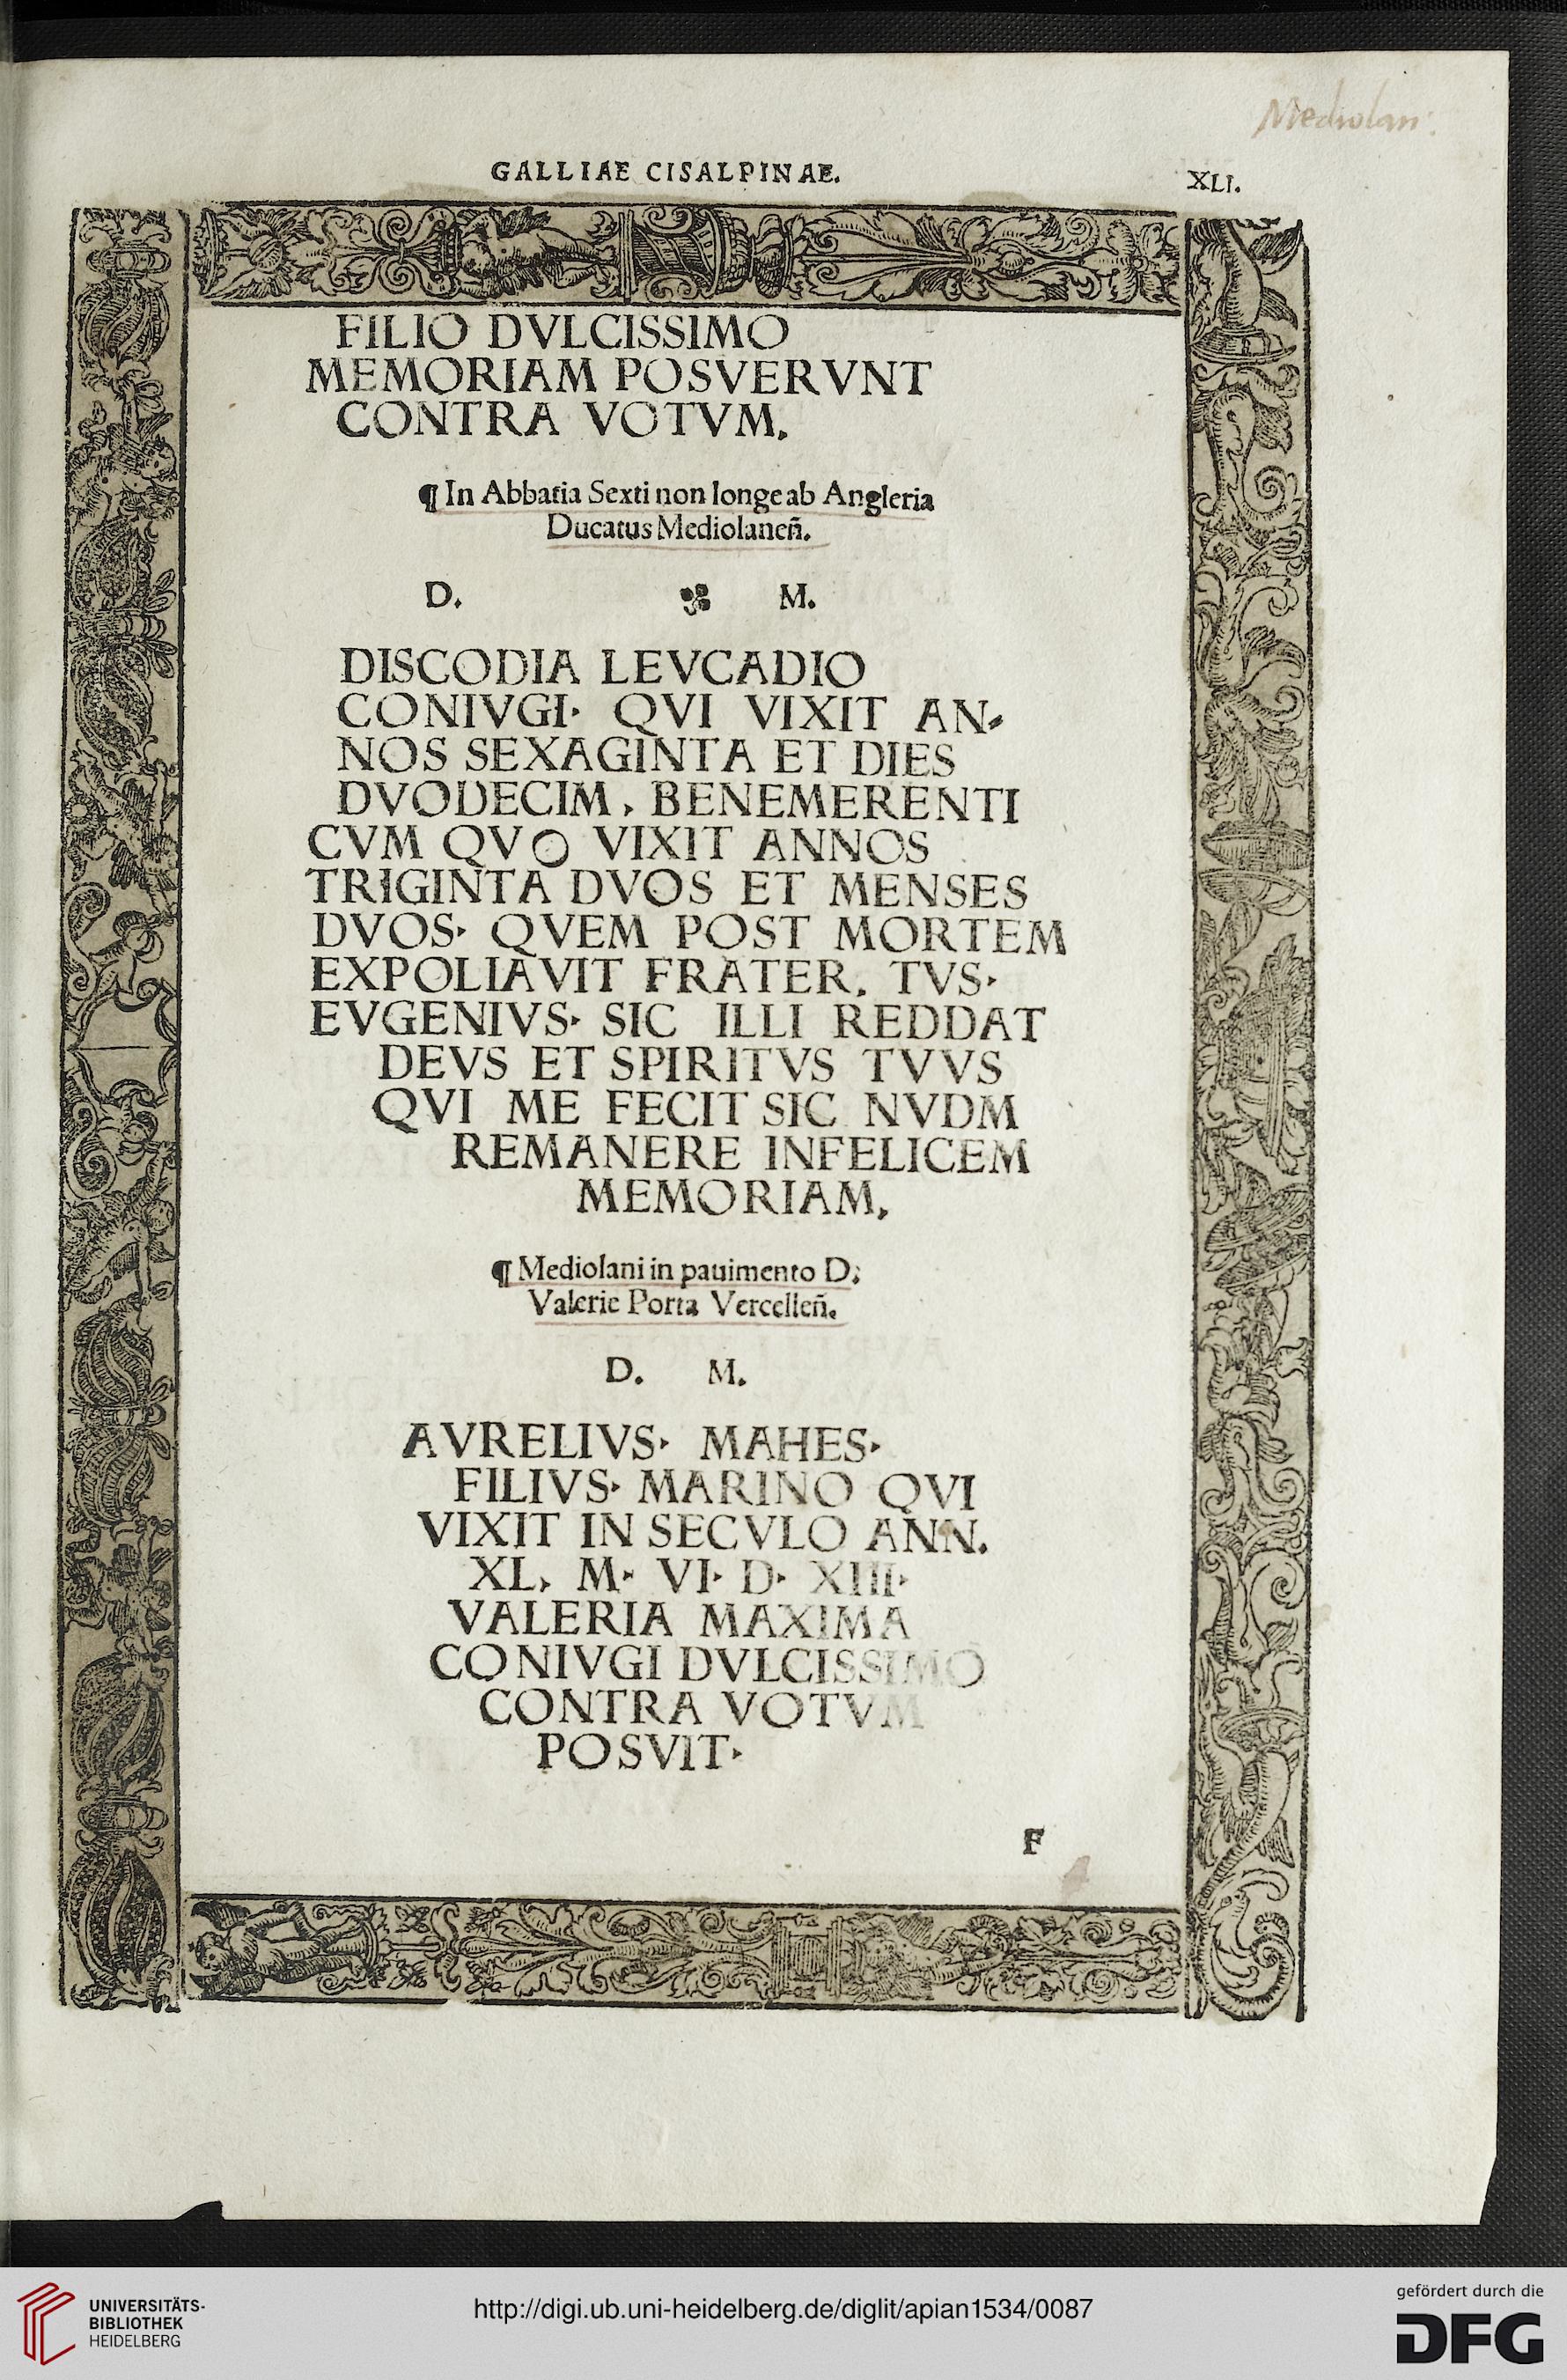 Mediolan:
GALLIAE CISALPINAE. XLI.
FILIO DVLCISSIMO
MEMORIAM POSVERVNT
CONTRA VOTVM.
¶ In Abbatia Sexti non longe ab Angleria
Ducatus Mediolaneñ.
D. M.
DISCODIA LEVCADIO
CONIVGI· QVI VIXIT AN⸗
NOS SEXAGINTA ET DIES
DVODECIM, BENEMERENTI
CVM QVO VIXIT ANNOS
TRIGINTA DVOS ET MENSES
DVOS· QVEM POST MORTEM
EXPOLIAVIT FRATER. TVS·
EVGENIVS· SIC ILLI REDDAT
DEVS ET SPIRITVS TVVS
QVI ME FECIT SIC NVDM
REMANERE INFELICEM
MEMORIAM,
¶ Mediolani in pauimento D;
Valerie Porta Vercelleñ.
D. M.
AVRELIVS· MAHES·
FILIVS· MARINO QVI
VIXIT IN SECVLO ANN.
XL, M· VI· D· XIIII·
VALERIA MAXIMA
CONIVGI DVLCISSIMO
CONTRA VOTVM
POSVIT·
F
UNIVERSITÄTS-
BIBLIOTHEK
HEIDELBERG
http://digi.ub.uni-heidelberg.de/diglit/apian1534/0087
gefördert durch die
DFG